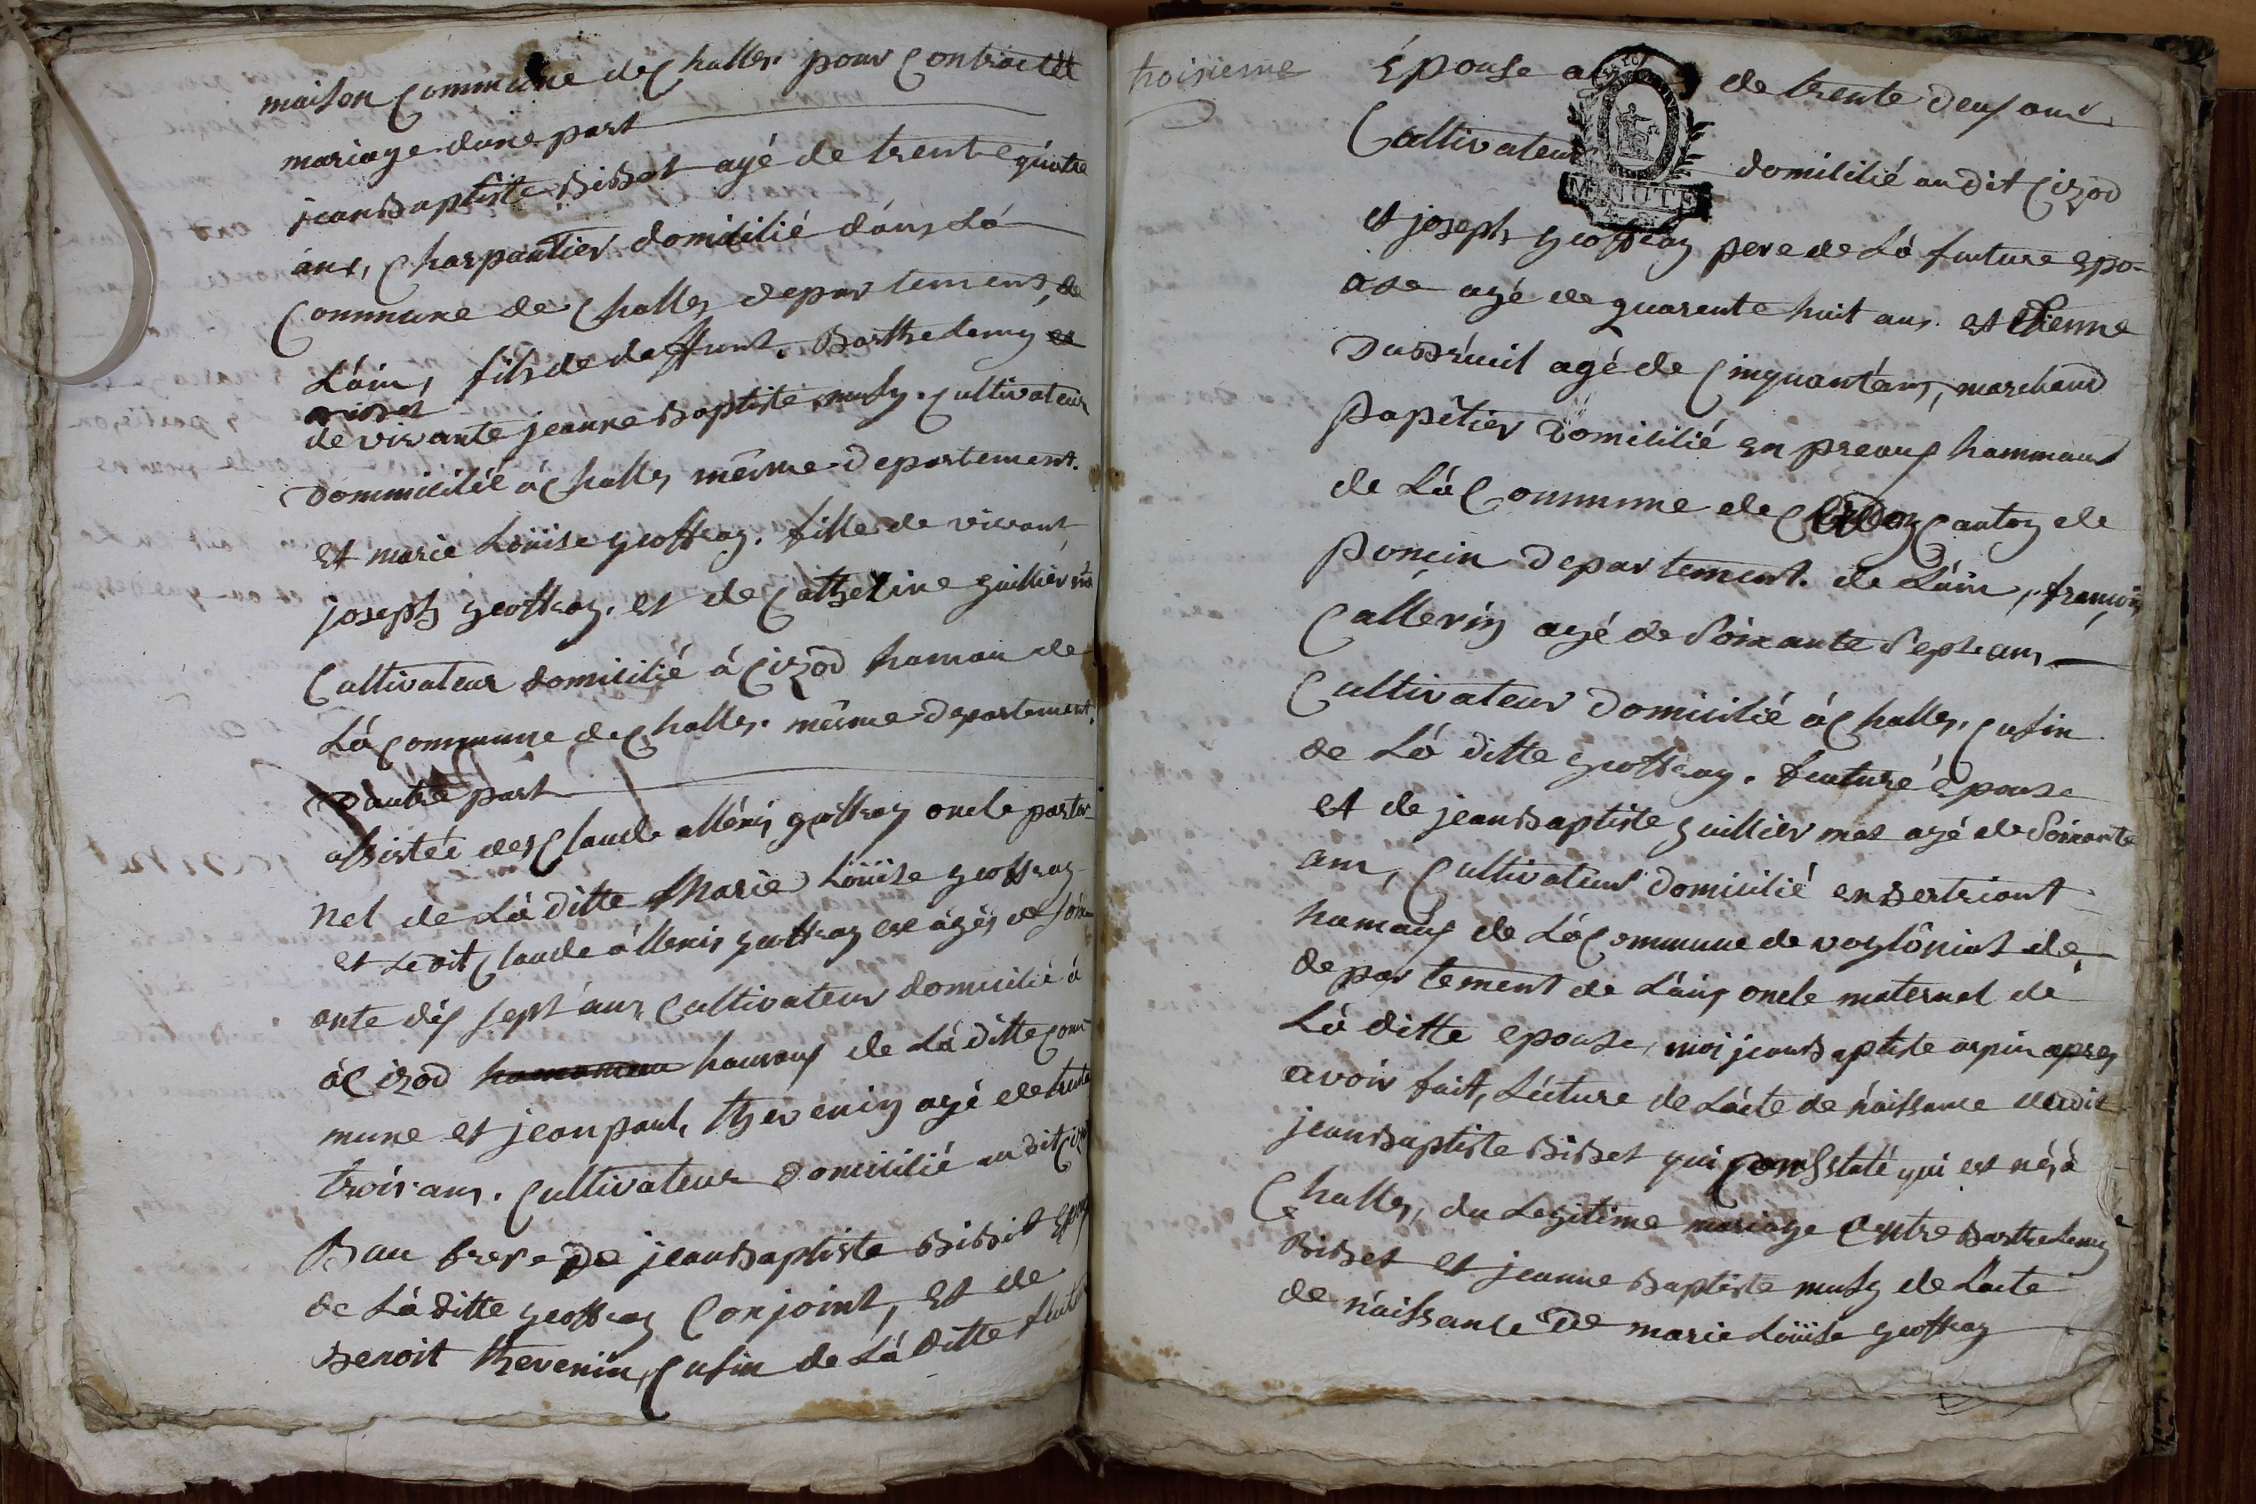 maison Commune de Challes pour Contracter
mariage dune part
jean Baptiste BiBet agé de trente quatre
ans, Charpantier domicilié dans Lá
Commune de Challes departement, de
Láin, fils de deffunt. Barthelemy et
BiBet
de vivante jeanne Baptiste musy. Cultivateur
Dommicilié á Challes même departement.
et marie Loüise geoffray. fille de vivant
joseph geoffray. et de Catherine guillier
Cultivateur domicilié á Cizod hamau de
Lá Commune de Challes. même departement.
D'autre part
assistée de Claude allérin geoffray oncle pater-
nel de Lá ditte Marie Loüise geoffray
et Ledit Claude allerin geoffray est ágés de soix
ante dix sept ans Cultivateur domicilié á
á Cizod hamaux de Lá ditte Com-
mune et jean paul, thevenin agé de trente
trois ans. Cultivateur domicilié audit Cizod
Bau frere De jean Baptiste BiBet Epoux
de Lá ditte geoffray Conjoint, et de
Benoit thevenin, Cusin de Lá ditte futur
troisieme
Épouse agé de trente deux ans
Cultivateur domicilié audit Cizod
et joseph geoffray pere de Lá futture epo-
use agé de quarente huit ans. et Etienne
DuBreuil agé de Cinquant'ans, marchand
Papêtier domicilié en preaux hammaux
de Lá Commune de Canton de
Poncin departement. de Láin, françois
Callerin agé de Soixante Sept ans
Cultivateur domicilié á Challes, Cusin
de Lá ditte geoffray. futturé épouse
et de jean Baptiste guillier mas agé de Soixante
ans, Cultivateur domicilié en Bertriant
hamaux de Lá Commune de voglônias de
departement de Láin oncle maternel de
Lá ditte epouse, moi jean Baptiste arpin apres
avoir fait, Lécture de Lácte de náissance dudit
jean Baptiste BiBet qui Constaté qui est né, á
Challes, du Legitime mariage Entre Barthelemy
BiBet et jeanne Baptiste musy de Lacte
de náissance De marie Loüise geoffray
MINUTE